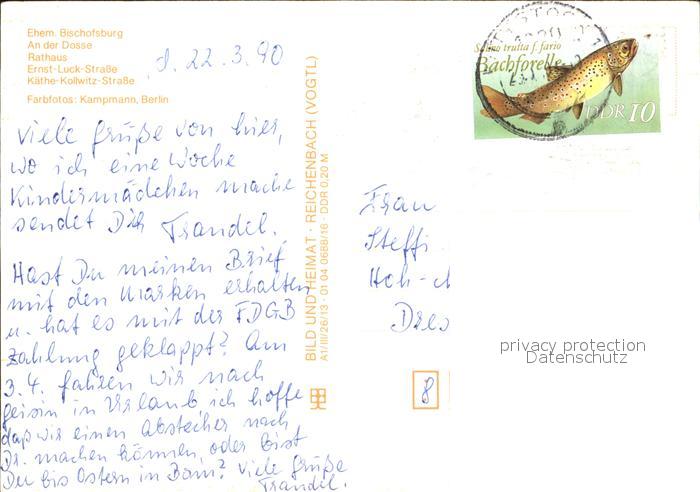 Ehem. Bischofsburg
An der Dosse
Rathaus
Ernst-Luck-Straße
Käthe-Kollwitz-Straße
Farbfotos: Kampmann, Berlin
22.3.90
Viele Grüße von hier,
wo ich eine Woche
Kindermädchen mache
sendet Dir Traudel.
Hast Du meinen Brief
mit den Marken erhalten
u. hat es mit der FDGB
Zahlung geklappt? Am
3.4. fahren wir nach
in Urlaub ich hoffe
daß wir einen Abstecher nach
Dr. machen können, oder bist
Du bis Ostern in Bom? Viele Grüße
Traudel.
BILD UND HEIMAT · REICHENBACH (VOGTL)
A1/III/26/13 · 01 04 0688/16 · DDR 0,20 M
Salmo trutta f. fario
Bachforelle
DDR 10
Frau
Steffi
Dres
8
privacy protection
Datenschutz